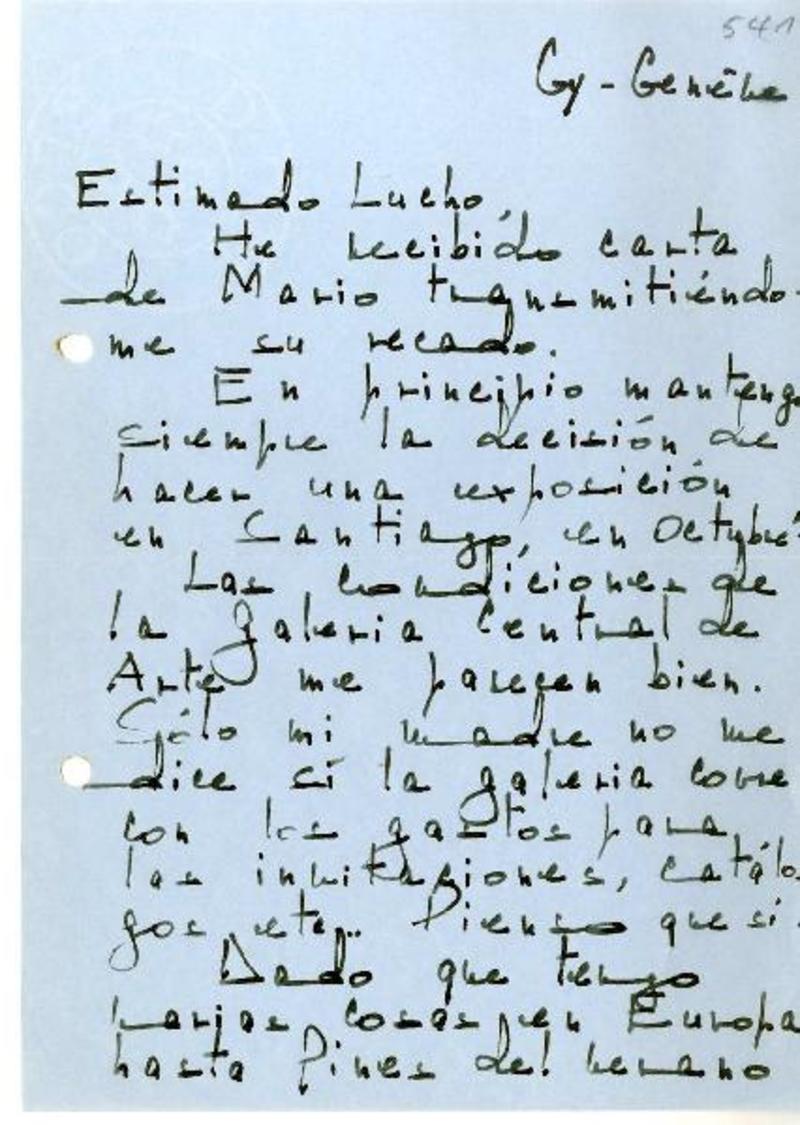 541
Gy - Genève
Estimado Lucho,
He recibido carta
de Mario transmitiéndo-
me su recado.
En principio mantengo
siempre la decisión de
hacer una exposición
en Santiago, en Octubre
Las condiciones de
la galeria Central de
Arte me parecen bien.
Sólo mi madre no me
dice si la galeria corre
con los gastos para
las invitaciones, catálo-
gos, etc,.. Pienso que si.
Dado que tengo
varias cosas en Europa
hasta fines del verano